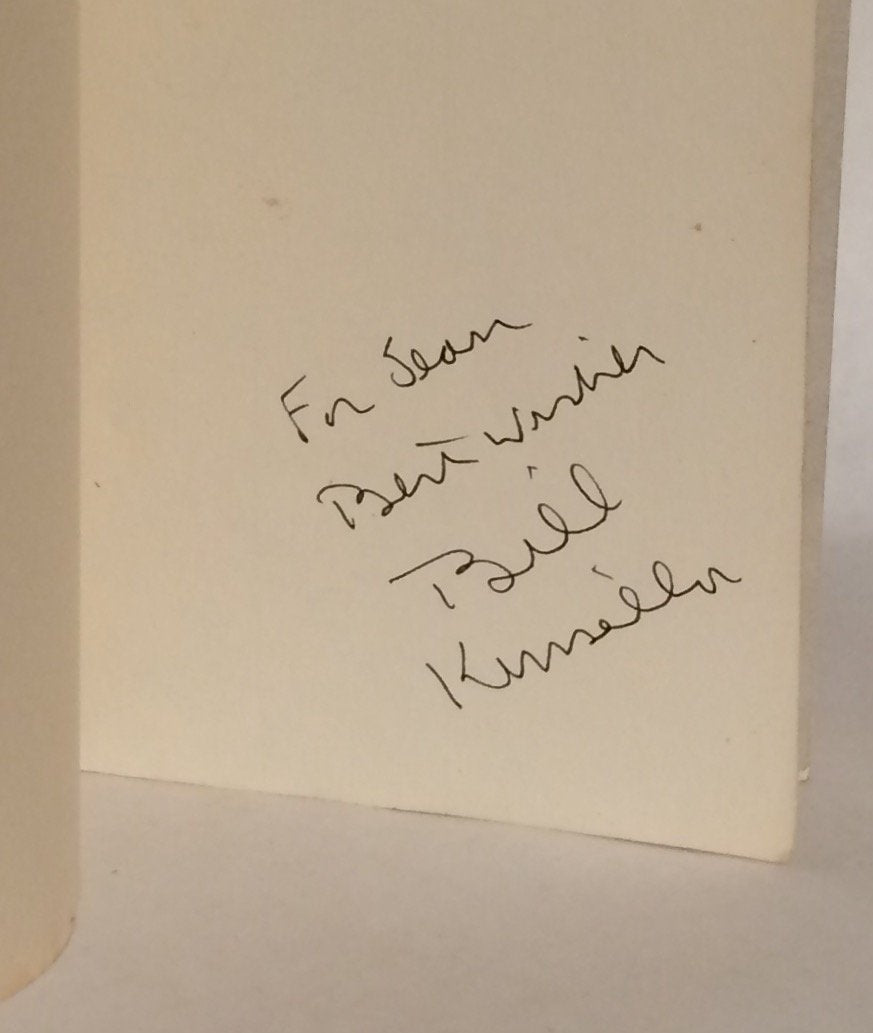 For Jean
Best wishes
Bill
Kinsella